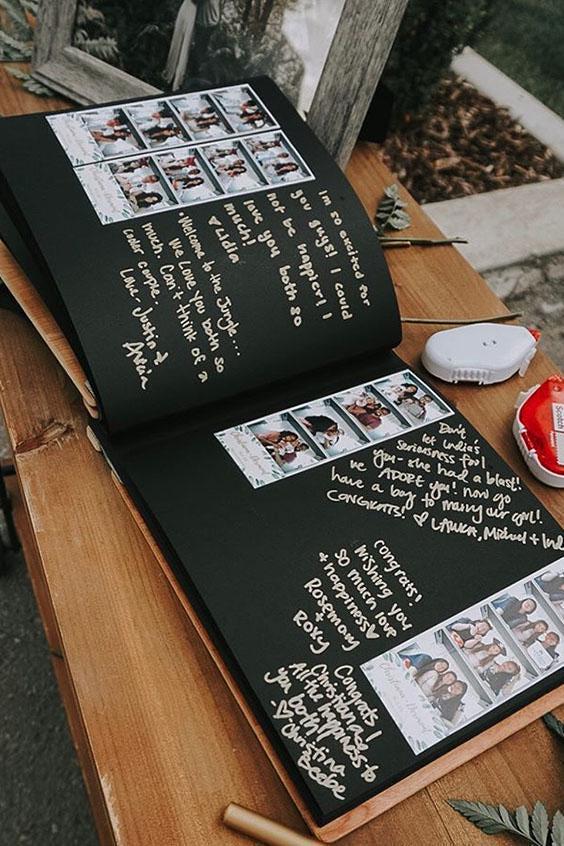 I'm so excited for
you guys! I could
not be happier! I
love you both so
much!
♥ Lidia
"Welcome to the Jungle...
We Love you both so
much. Can't think of a
cooler couple.
Love Justin &
Alycia
Don't
let India's
Seriousness fool
you - she had a blast!
We ADORE you! now go
have a boy to marry our girl!
CONGRATS! ♡ LAURA, Michael + Ind
Congrats!
Wishing you
so much love
+ happiness ♥
Rosemary
+
Roxy
Congrats
Christina
All the happiness to
you both!
♡ Christina
Beebe
Scotch